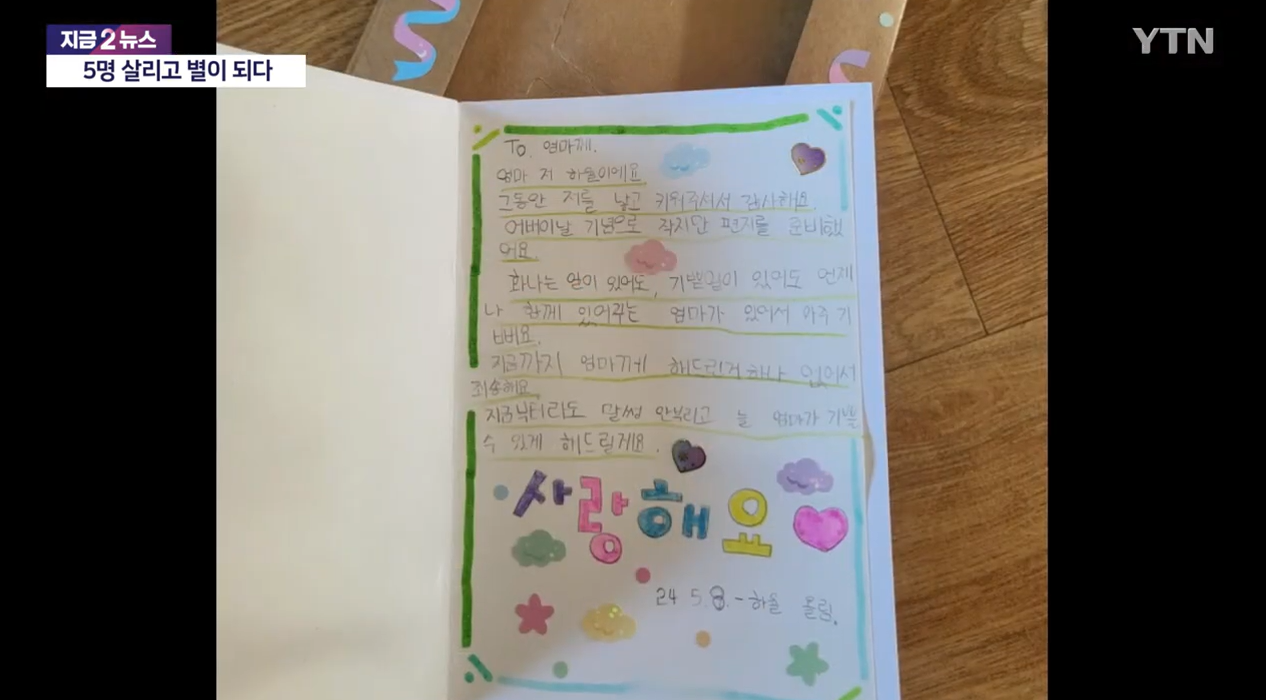 지금2뉴스
5명 살리고 별이 되다
YTN
To. 엄마께.
엄마 저 하율이에요
그동안 저를 낳고 키워주셔서 감사해요.
어버이날 기념으로 작지만 편지를 준비했
어요.
화나는 일이 있어도, 기쁜일이 있어도 언제
나 함께 있어주는 엄마가 있어서 아주 기
뻐요.
지금까지 엄마께 해드린거 하나 없어서
죄송해요.
지금부터라도 말썽 안부리고 늘 엄마가 기쁠
수 있게 해드릴게요.
사랑해요
24 5.8. - 하율 올림.